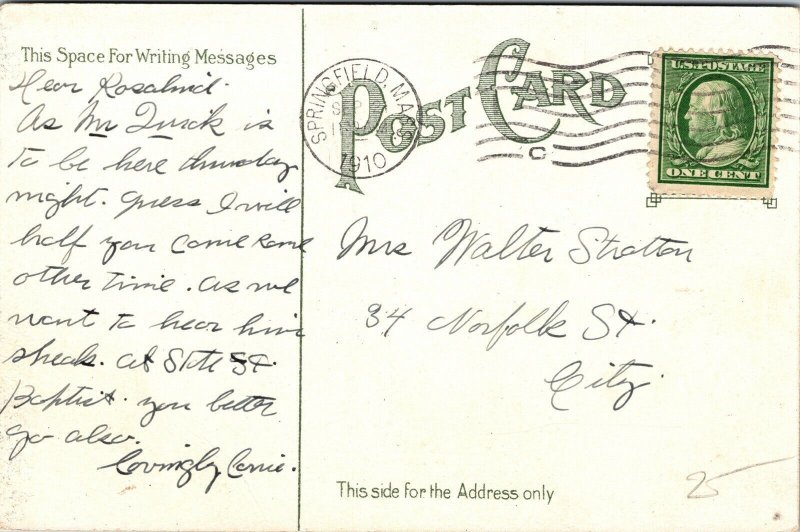 This Space For Writing Messages
Dear Rosalind.
As Mr Quick is
to be here thursday
night. guess I will
half you come some
other time. as we
want to hear him
speak. at State St.
Baptist. you better
go also.
Lovingly Carrie.
POST CARD
SPRINGFIELD, MASS
SEP
1910
C
U.S. POSTAGE
ONE CENT
Mrs Walter Stratton
34 Norfolk St.
City.
This side for the Address only
25